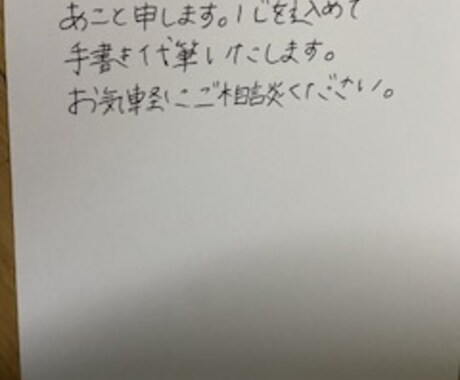 あこと申します。心を込めて
手書き代筆いたします。
お気軽にご相談ください。